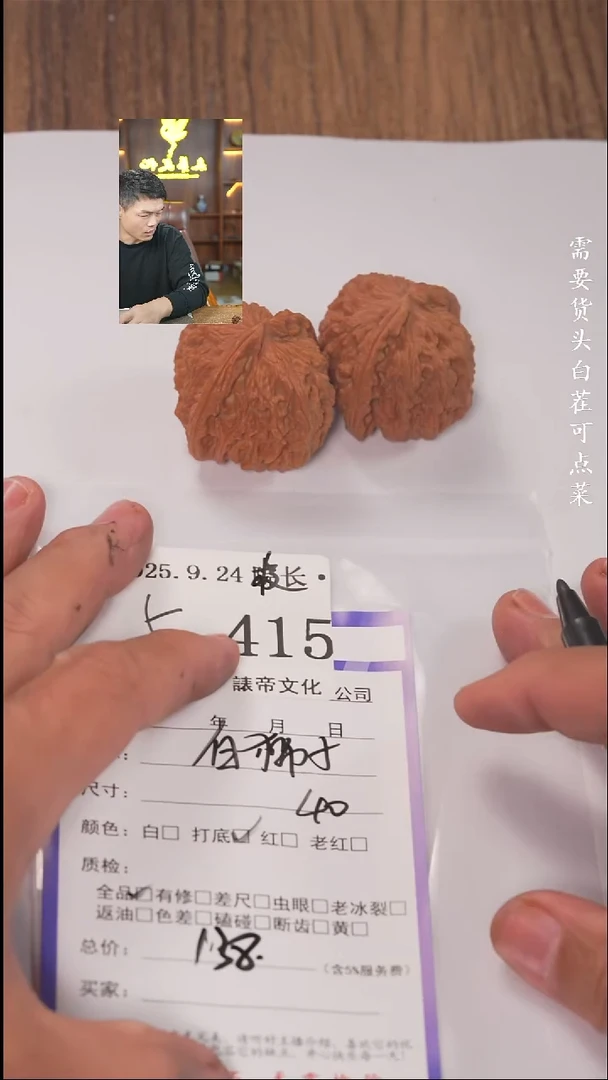 需要货头白茬可点菜
25.9.24 长.
415
諘帝文化 公司
年 月 日
白狮子
尺寸： 40
颜色：白□ 打底☑ 红□ 老红□
质检：
全品☑有修□差尺□虫眼□老冰裂□
返油□色差□磕碰□断齿□黄□
总价： 138.
（含5%服务费）
买家：